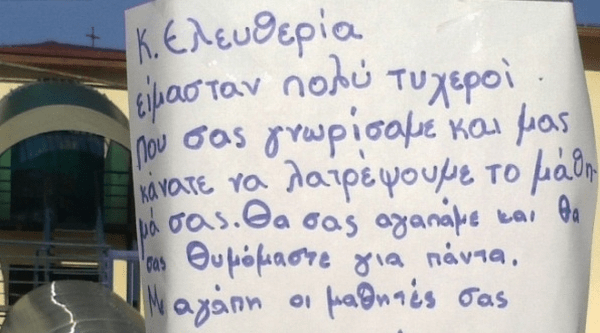 Κ. Ελευθερία
είμασταν πολύ τυχεροί
που σας γνωρίσαμε και μας
κάνατε να λατρέψουμε το μάθη-
μά σας. Θα σας αγαπάμε και θα
σας θυμόμαστε για πάντα.
Μ αγάπη οι μαθητές σας